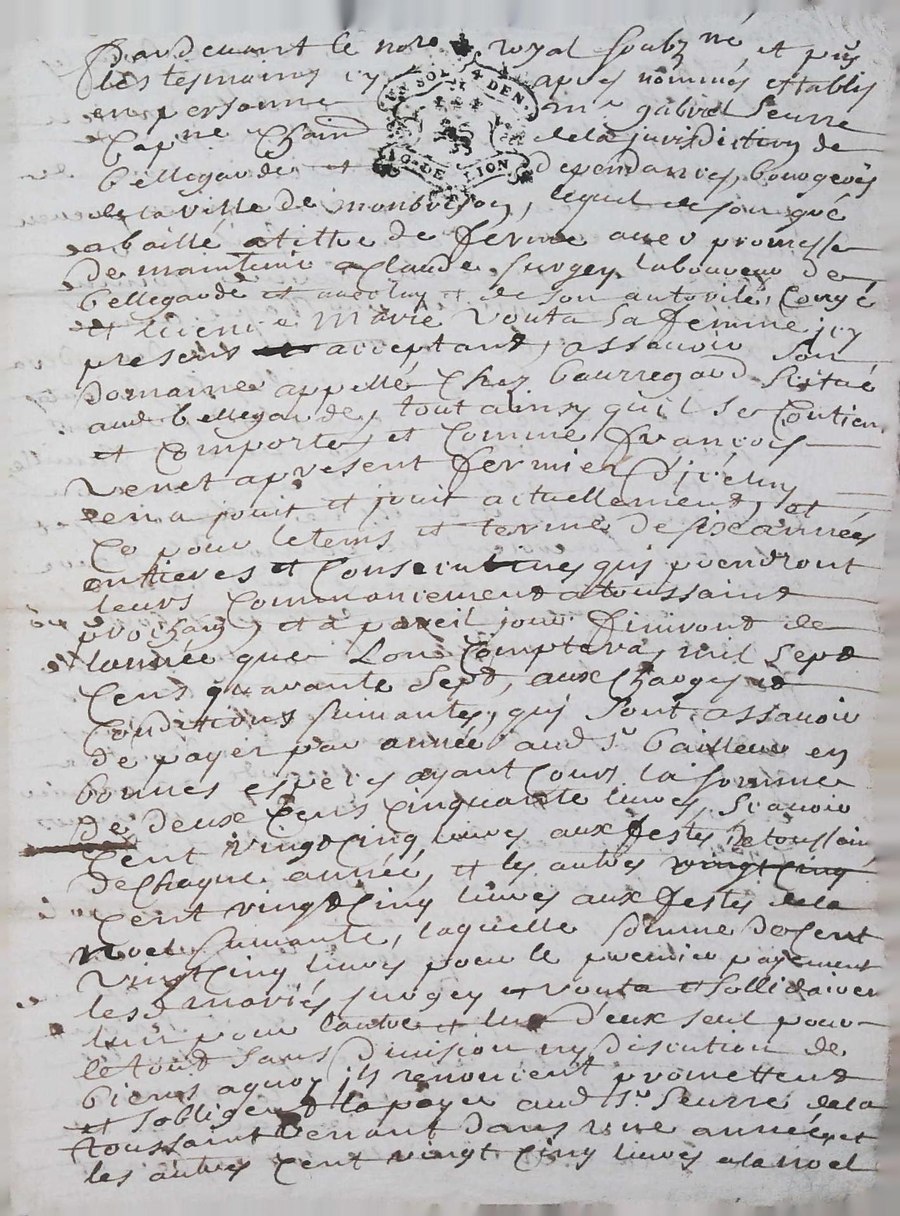 Pardevant le nore royal soubz né, et pñs
les tesmoins cy apres nommés establis
en personne mr gabriel Seurre
Capne Chain de la jurisdiction de
bellegarde et dependances, bourgeois
de la ville de monbrison, lequel de son gré
a baillé a tittre de ferme avec promesse
de maintenir a Claude Surgey laboureur de
bellegarde et avec luy et de son autorité, Congé
et licence Marie Vouta sa femme icy
presens acceptant, assavoir son
Domaine appellé Chez baurregard scitué
aud bellegarde, tout ainsy qu'il se Contien
et Comporte, et Comme françois
Venet apresent fermier d'iceluy
en a jouit et jouit actuellement, et
Ce pour le tems et terme de six années
entieres et Consecutives qui prendront
leurs Commancement a toussaint
prochain, et a pareil jour finiront de
l'année que L'on Comptera, mil sept
Cens quarante Sept, aux Charges et
Conditions suivantes, qui sont assavoir
de payer par année aud sr bailleur en
bonnes especes ayant Cours la somme
de deux Cens Cinquante livres, scavoir
Cent vingt Cinq livres aux festes de toussain
de Chaque année, et les autres vingt Cinq
Cent vingt Cinq livres aux festes de la
Noel suivante, laquelle somme de Cent
vingt Cinq livres pour le premier payement
lesd mariés Surgey et Vouta et sollidairem
l'un pour l'autre et l'un d'eux seul pour
le tout sans division ny discution de
biens a quoy ils renoncent promettent
et s'obligent la payer aud sr Seurre de la
toussaint venant dans une année, et
les autres Cent vingt Cinq livres a la noel
SOL 4 DEN.
G. DE LION